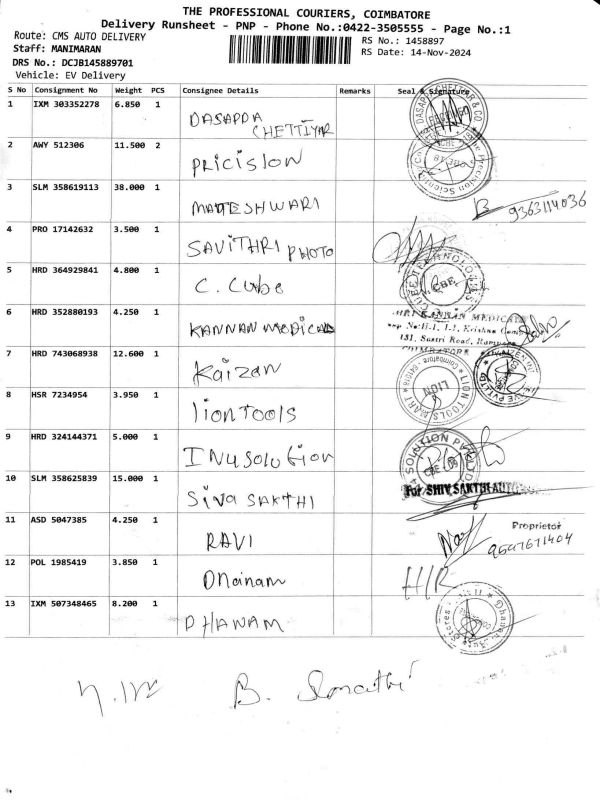 THE PROFESSIONAL COURIERS, COIMBATORE
Delivery Runsheet - PNP - Phone No.:0422-3505555 - Page No.:1
Route: CMS AUTO DELIVERY
RS No.: 1458897
Staff: MANIMARAN
RS Date: 14-Nov-2024
DRS No.: DCJB145889701
Vehicle: EV Delivery
S No Consignment No Weight PCS Consignee Details Remarks Seal & Signature
1 IXM 303352278 6.850 1 DASAPDA
CHETTIYAR
2 AWY 512306 11.500 2 PRICISION
3 SLM 358619113 38.000 1 MATESHWARI
9363114036
4 PRO 17142632 3.500 1 SAVITHRI PHOTO
5 HRD 364929841 4.800 1 C. Cube
6 HRD 352880193 4.250 1 KANNAN MEDICAL
7 HRD 743068938 12.600 1 Kaizan
8 HSR 7234954 3.950 1 lionTools LION TOOLS MART
9 HRD 324144371 5.000 1 INUSOLUTION
10 SLM 358625839 15.000 1 SIVA SAKTHI For SHIV SAKTHI AUTO
11 ASD 5047385 4.250 1 RAVI Proprietor
9547671404
12 POL 1985419 3.850 1 Dhanam
13 IXM 507348465 8.200 1 DHANAM